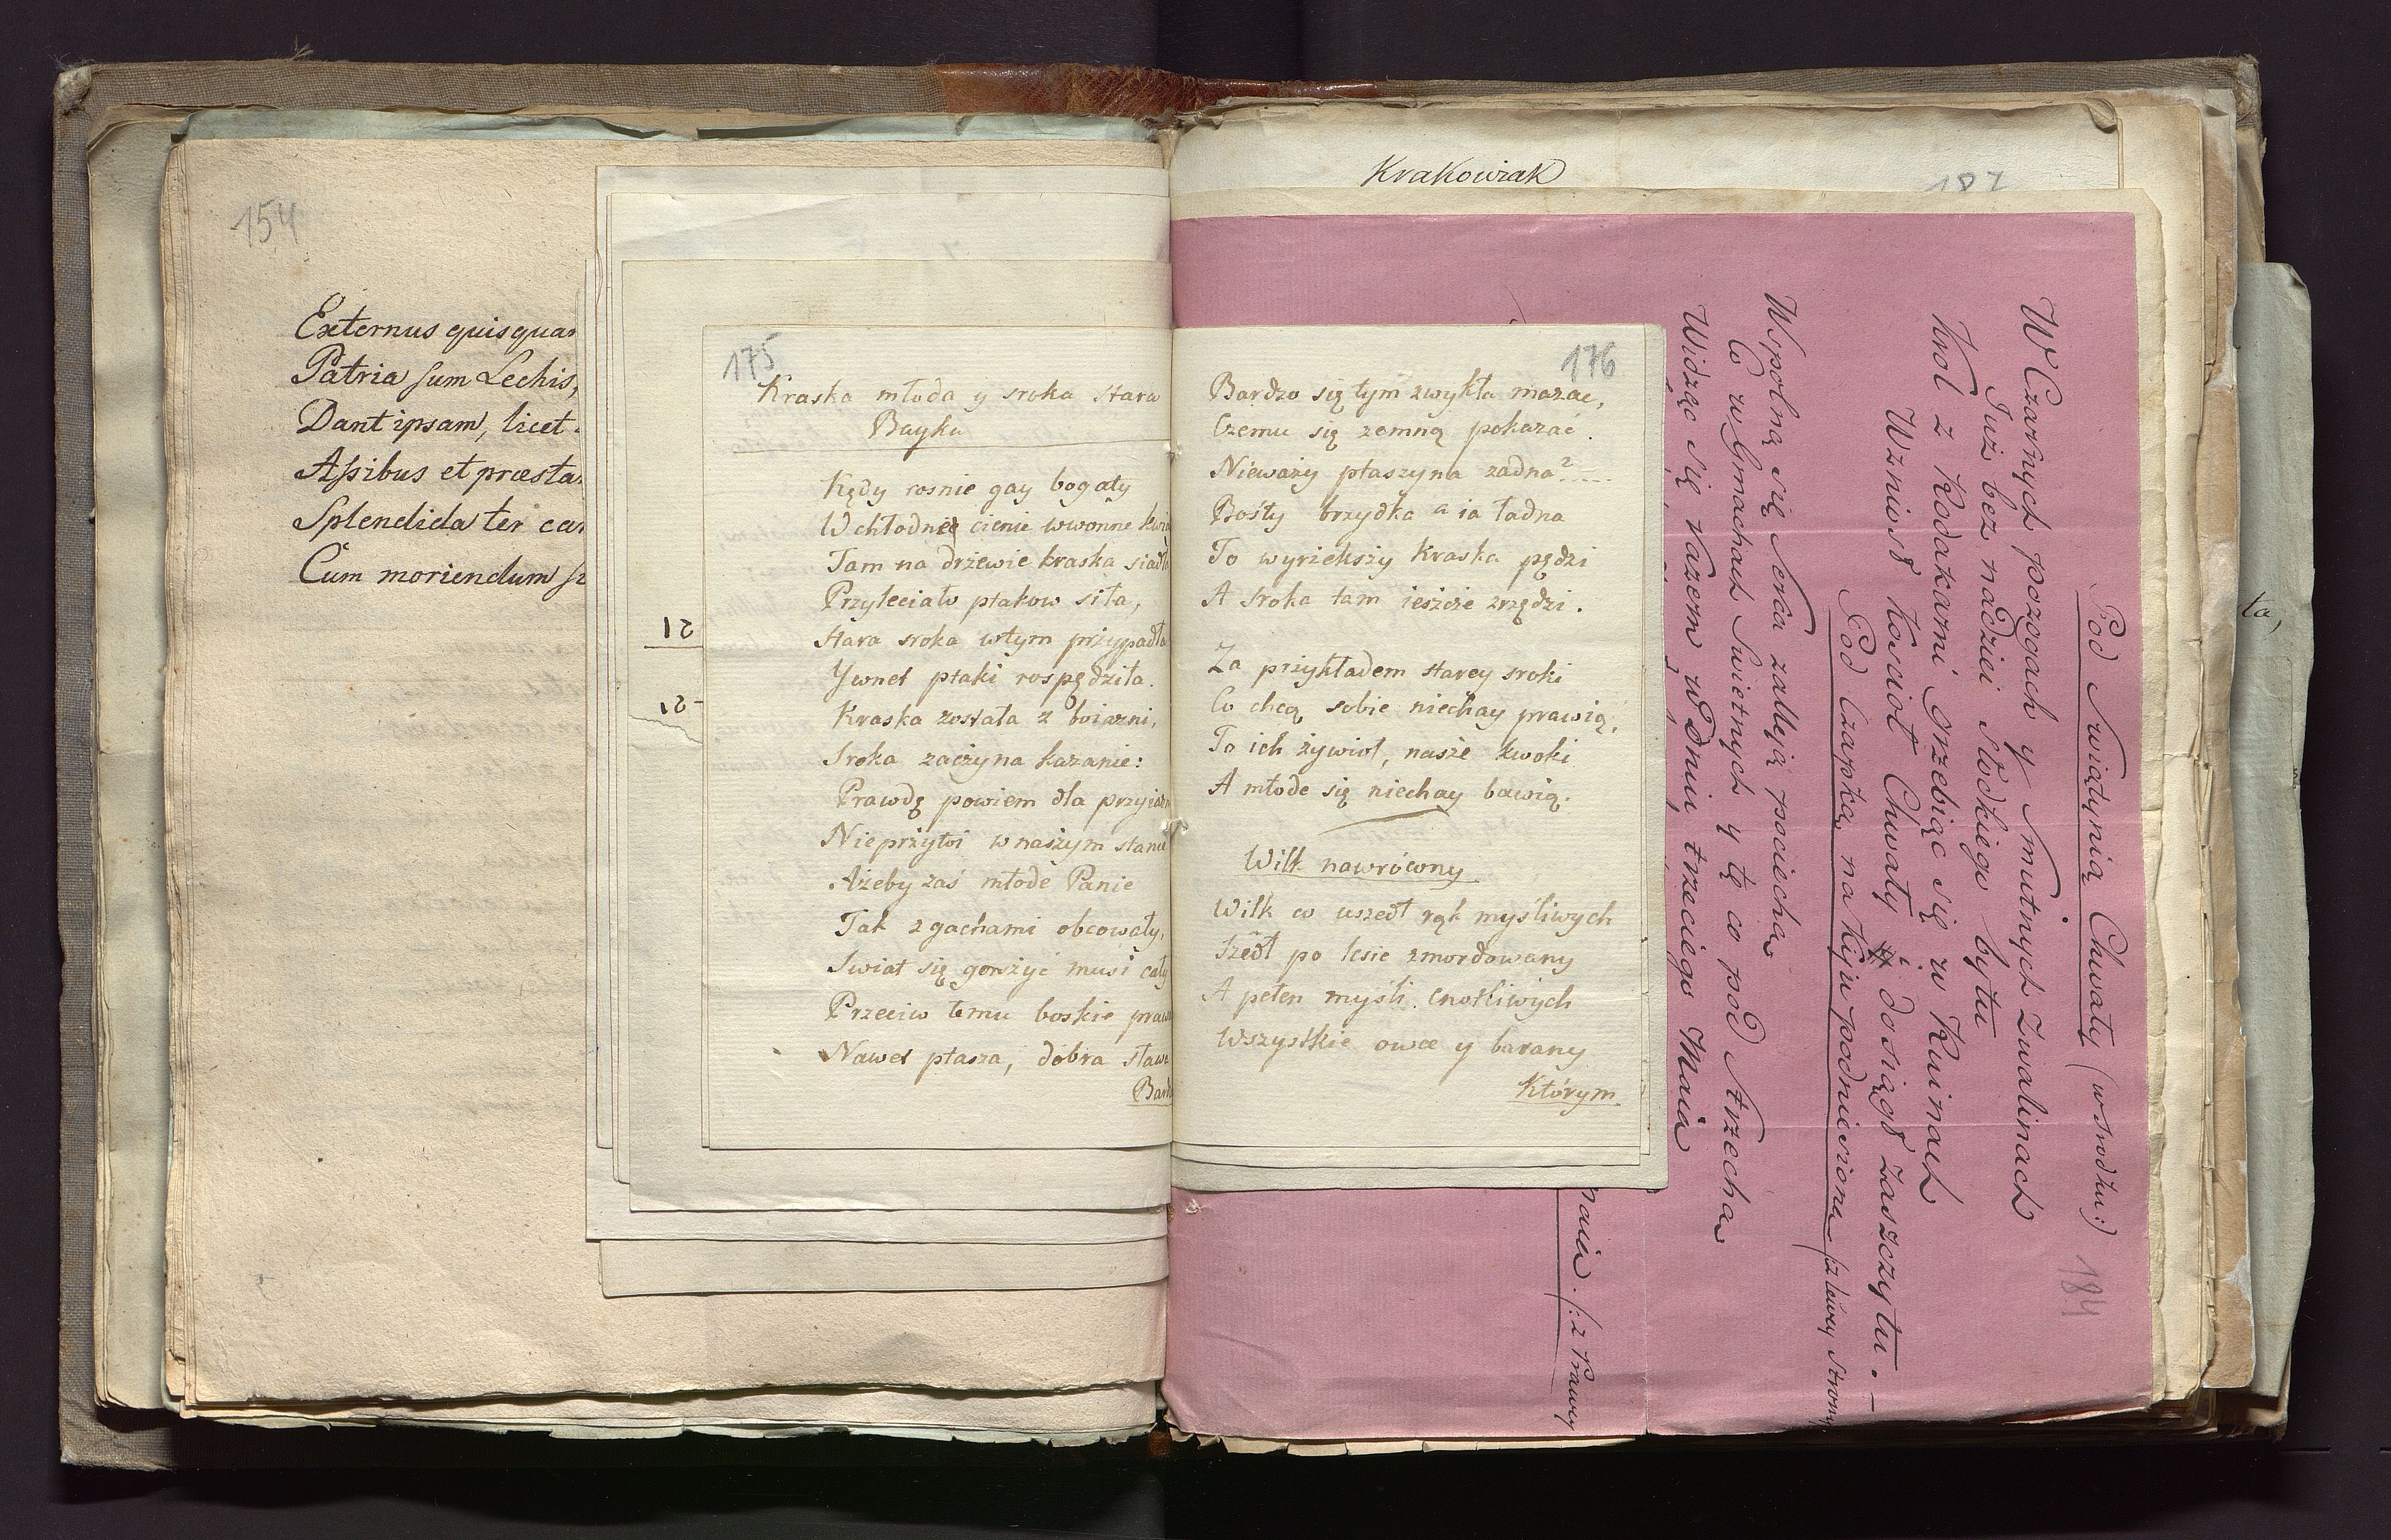 154
Externus quisqua
Patria sum Lechis,
Dant ipsam, licet
Assibus et præsta
Splendida ter ca
Cum moriendum
175
Kraska młoda y sroka stara
Bayka
Kędy rosnie gay bogaty
W chłodnie cienie wwonne kwia
Tam na drzewie kraska siadł
Przyleciało ptakow siła,
Stara sroka wtym przypadła
Y wnet ptaki rospędziła.
Kraska została z boiazni,
Sroka zaczyna kazanie:
Prawdę powiem dla przyiaz
Nieprzystoi w naszym stanie
Ażeby zaś młode Panie
Tak z gachami obcowały,
Swiat się gorszyć musi cały
Przeciw temu boskie praw
Nawet ptasza, dobra sława
Bard
12
12-
176
Bardzo się tym zwykła mazac,
Czemu się zemną pokazać
Nieważy ptaszyna żadna?.....
Bośty brzydka a ia ładna
To wyrzekszy Kraska pędzi
A sroka tam ieszcze zrzędzi.
Za przykładem starey sroki
Co chcą sobie niechay prawią,
To ich żywioł, nasze kwoki
A młode się niechay bawią.
Wilk nawrócony
Wilk co uszedł rąk myśliwych
Szedł po lesie zmordowany
A pełen myśli cnotliwych
Wszystkie owce y barany
Którym
Krakowiak
187
184
Pod Swiątynią Chwały (w srodku:)
W Czarnych pozogach y smutnych Zwalinach
Już bez nadziei słodkiego bytu
Krol z Rodakami grzebiąc się w Ruinach
Wzniosł Kościoł Chwały i dosiągł Zaszczytu.-
Pod Czapką na Kiju podniesioną (z lewey strony
Wspolną się serca zalleją pociechą
Co w Gmachach Swietnych y tę co pod strzechą
Widząc się razem w Dniu trzeciego Maia
(: z Prawey
ta,